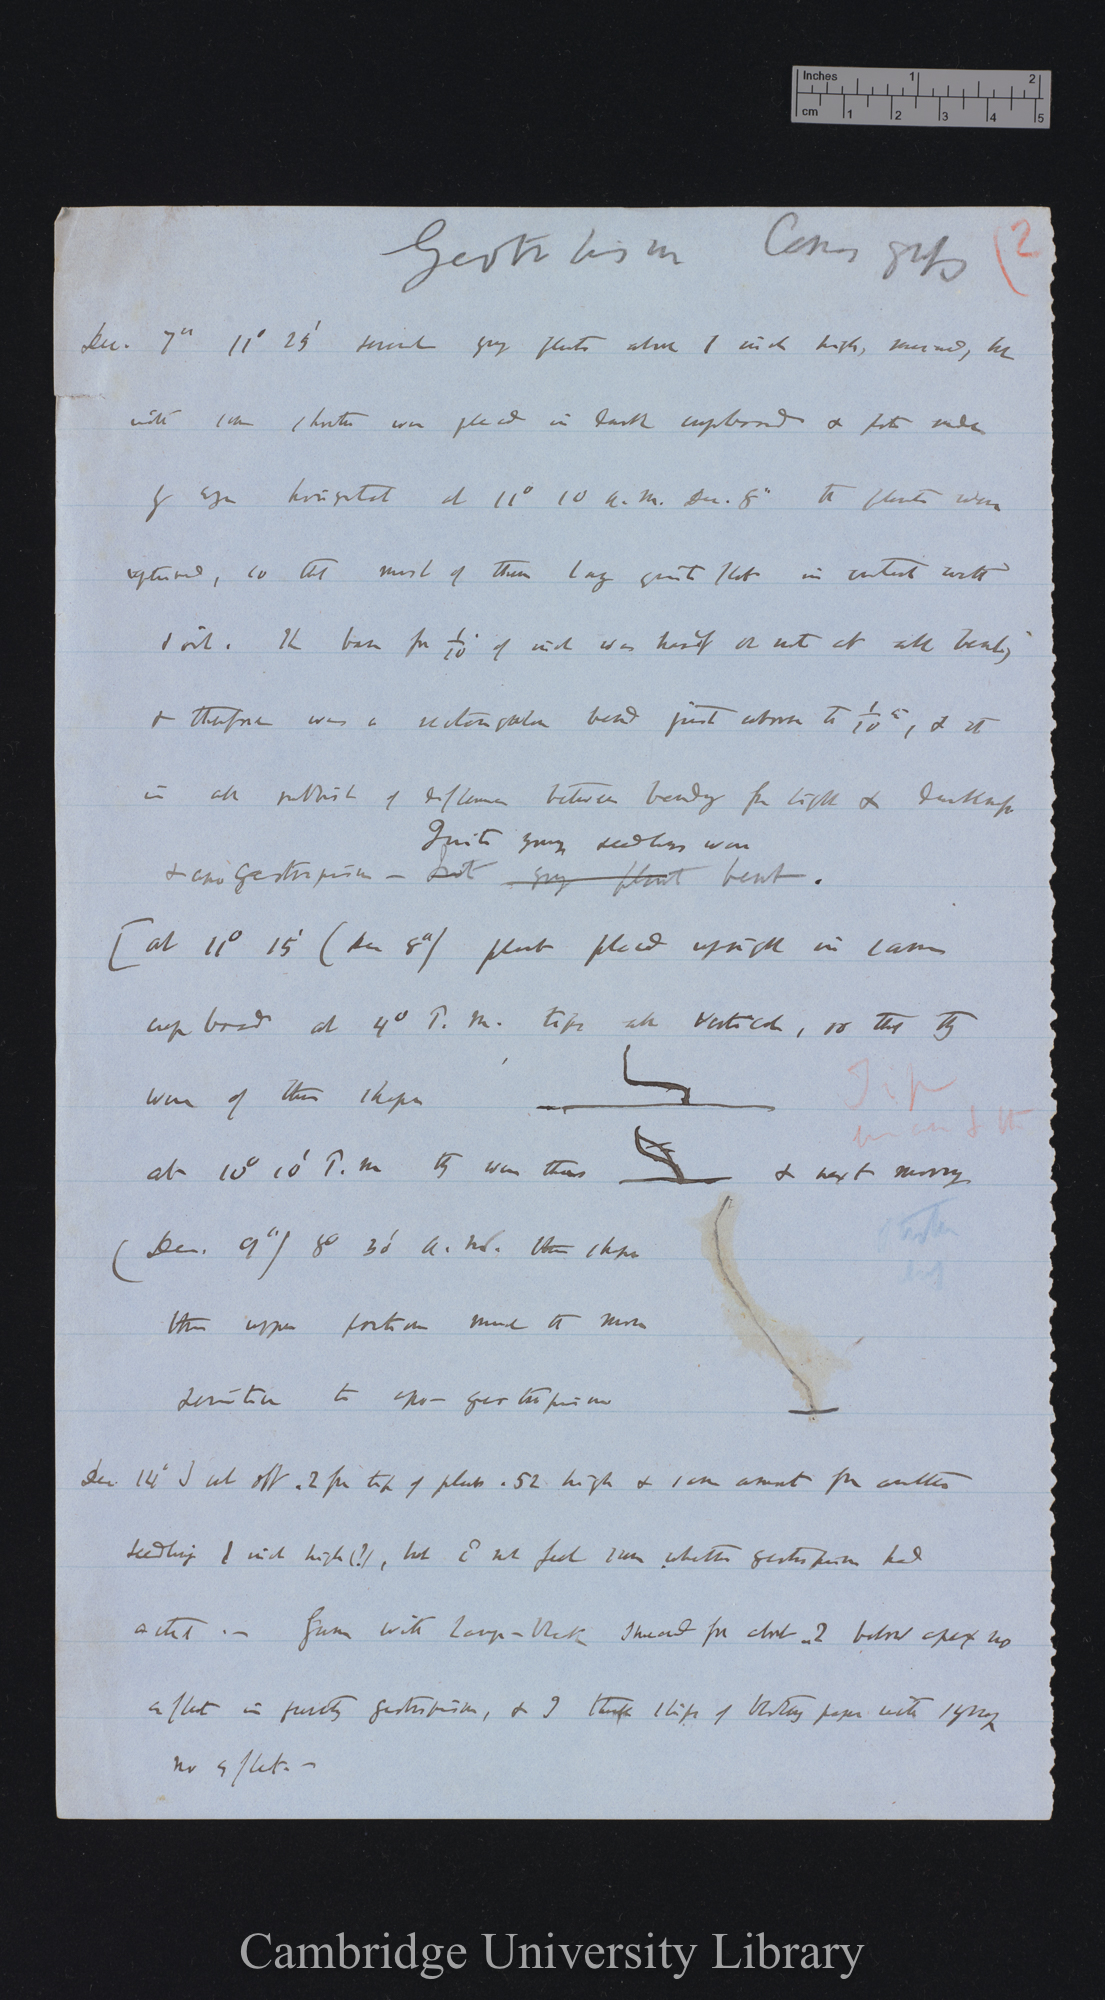 Inches 1 2
cm 1 2 3 4 5
Geotropism Canary grass (2
Dec. 7th 11° 25' several young plants about 1 inch high, manured, but
with some shorter were placed in dark cupboard & pots
horizontal at 11° 10 a.m. Dec. 8th the plants were
upturned, so that most of them lay quite flat in contact with
soil. The base for 1/10 of inch was hardly or not at all bent
& therefore was a rectangular bend just above the 1/10th, & it
is all rubbish of difference between bending for light & darkness
Quite young seedlings were
& apogeotropism — bent.
[at 11° 15' (Dec 8th) plants placed upright in same
cupboard at 4° P.M. tips all vertical, so that they
were of this shape
at 10° 10' P.M. they were thus & next morning
(Dec. 9th) 8° 30' A.M. this shape
the upper portion much the more
sensitive to apo-geotropism
Dec 14th I cut off .2 from tip of plant .52 high & same amount from another
seedling 1 inch high(?), but I not feel sure whether geotropism had
acted. — Gum with Lamp-black smeared for about .2 below apex no
effect in preventing geotropism, & I think strips of blotting paper with
no effect. —
Cambridge University Library